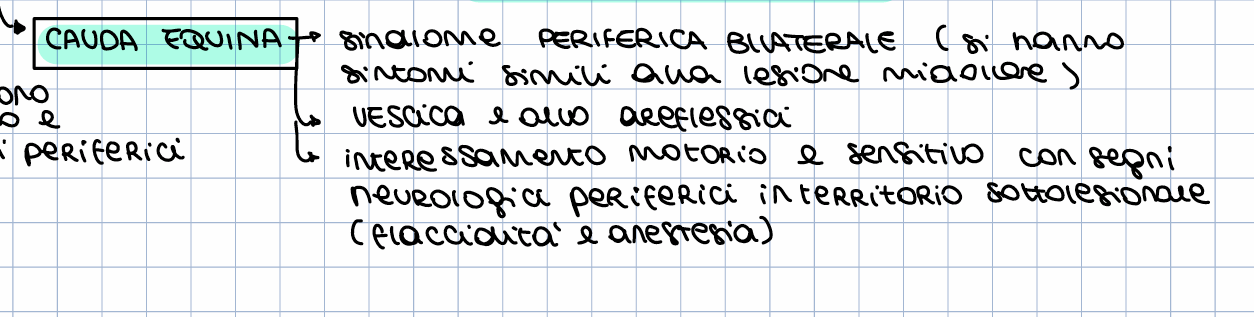 CAUDA EQUINA → sindrome PERIFERICA BILATERALE (si hanno
sintomi simili alla lesione midollare)
ono
o e
vescica e alvo areflessici
i periferici
interessamento motorio e sensitivo con segni
neurologici periferici in territorio sottolesionale
(flaccidita' e anestesia)